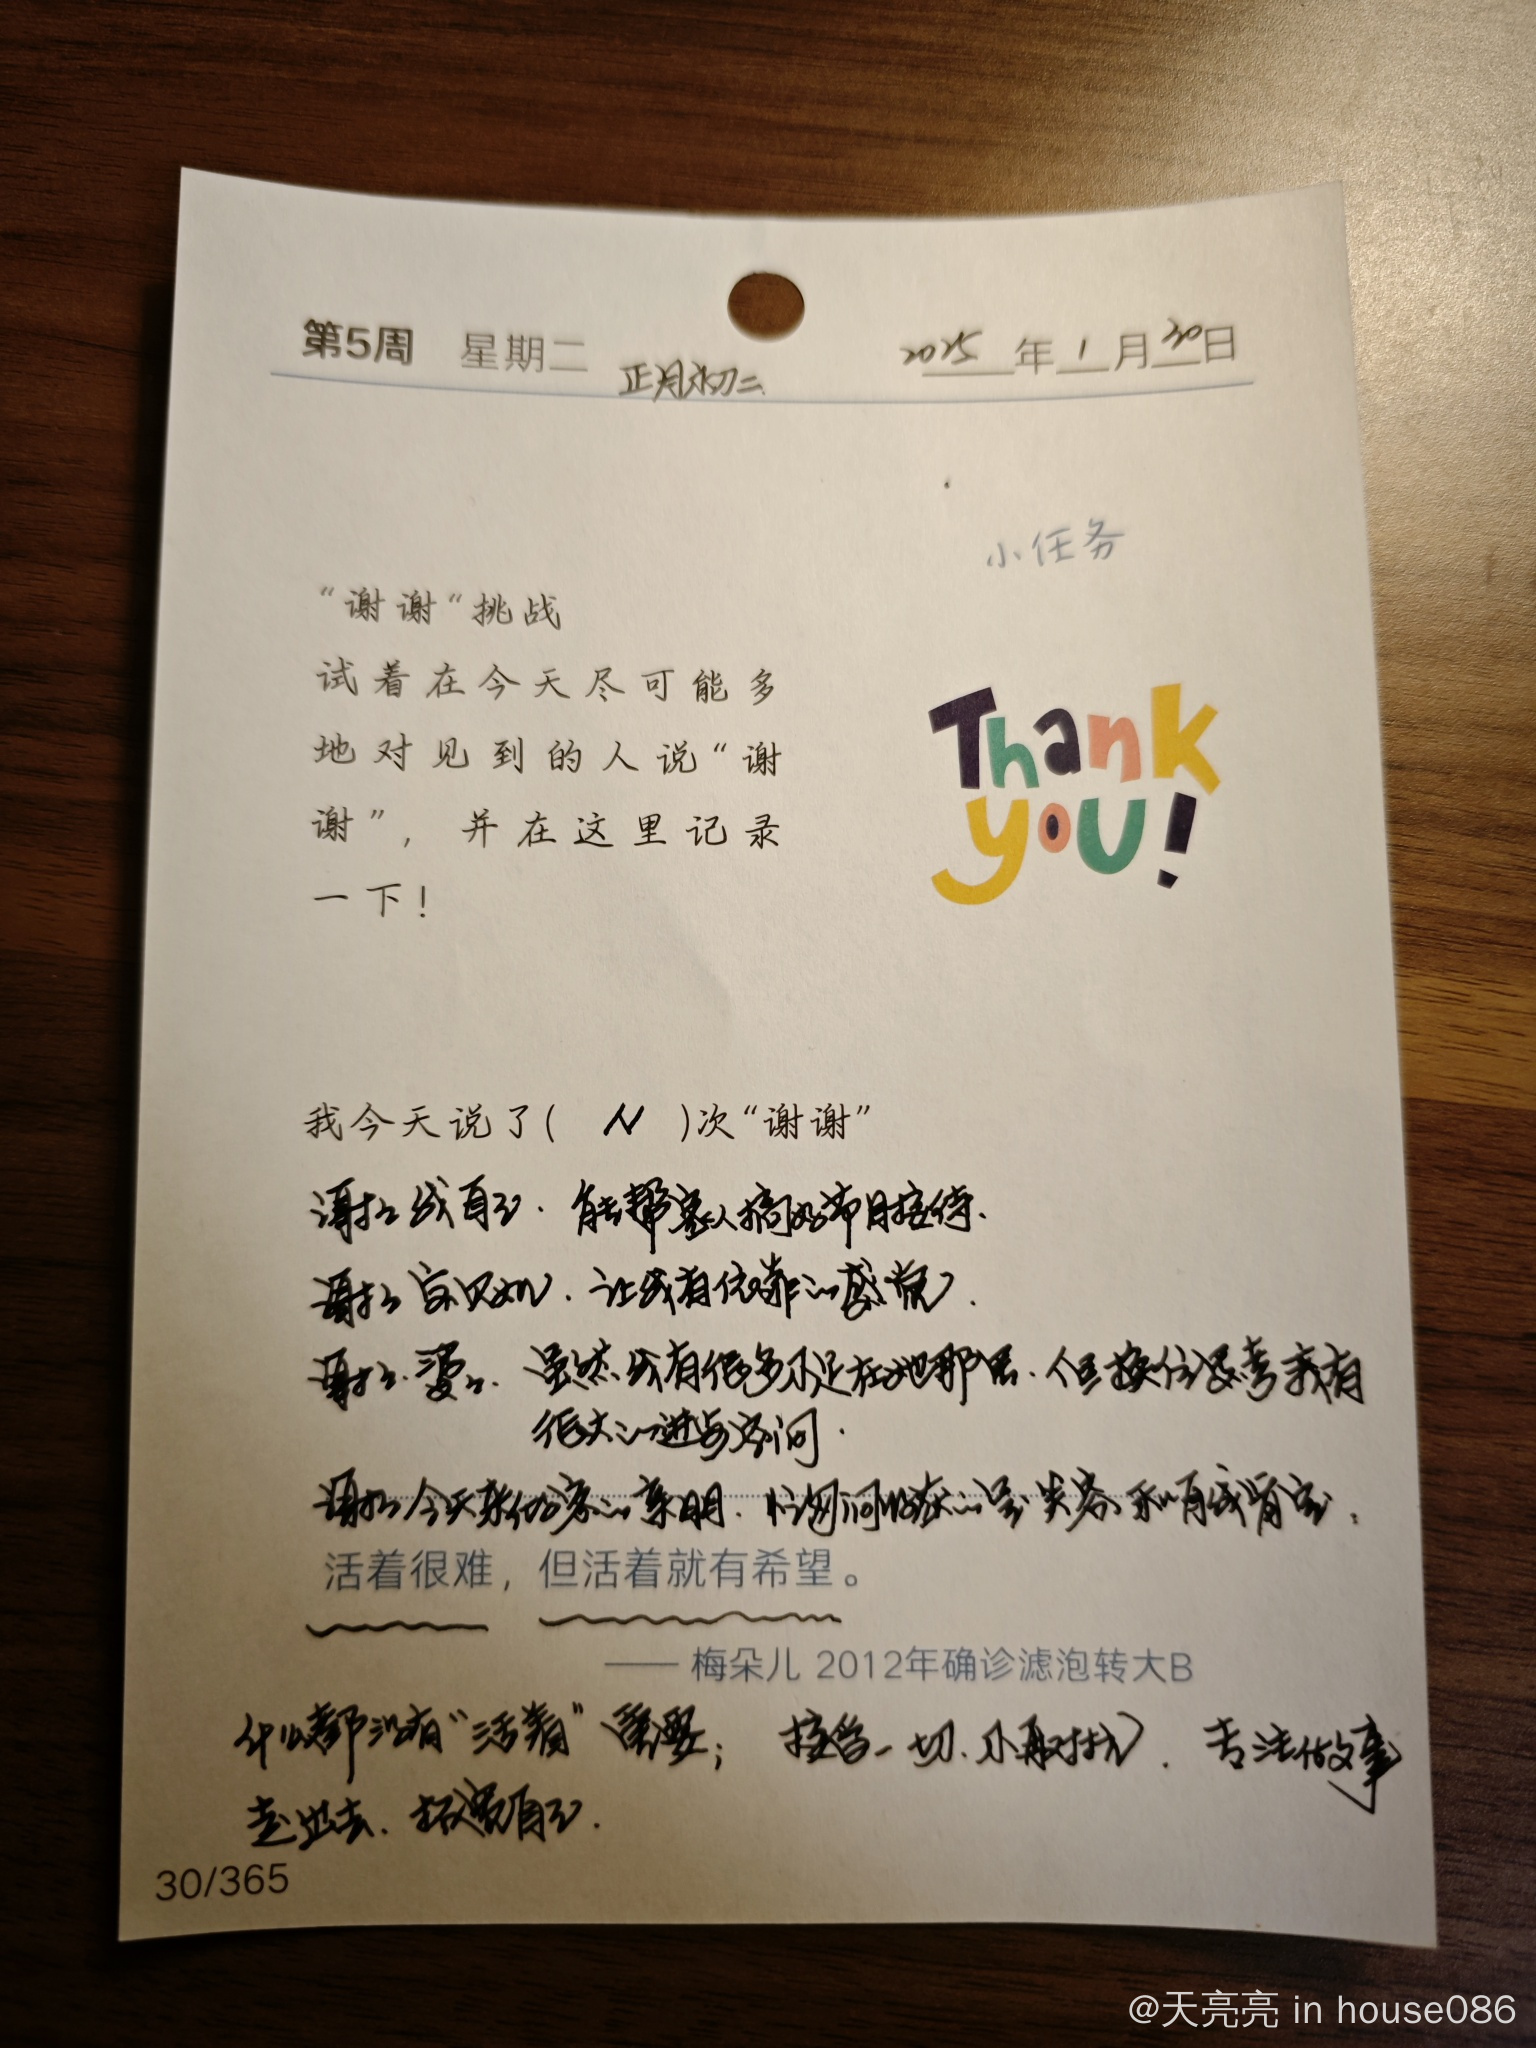 第5周 星期二 正月初二 2025年1月30日
小任务
“谢谢“挑战
试着在今天尽可能多
地对见到的人说“谢
谢”，并在这里记录
一下！
Thank
you!
我今天说了( N )次“谢谢”
谢谢我自己. 能帮家人搞好节日接待.
谢谢宗贝如. 让我有依靠的感觉.
谢谢婆婆. 虽然我有很多不足在她那里. 但换位思考我有
很大的进步空间.
谢谢今天来做客的亲朋.
活着很难，但活着就有希望。
—— 梅朵儿 2012年确诊滤泡转大B
什么都没有“活着”重要； 接受一切. 不再对抗. 专注做事
走出去.
30/365
@天亮亮 in house086